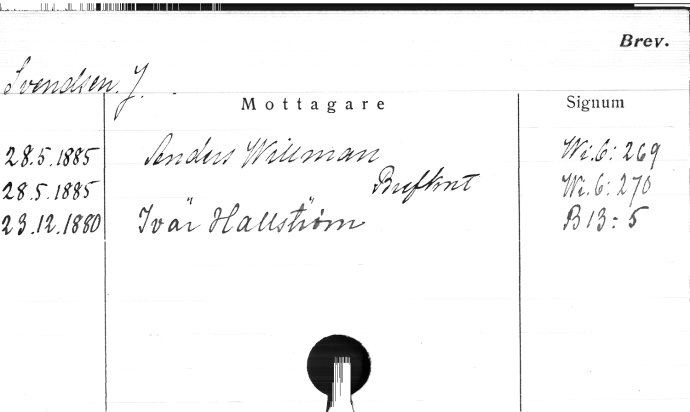 Brev.
Svendsen, J.
Mottagare Signum
28.5.1885 Anders Willman Wi.6: 269
28.5.1885 Brefkort Wi.6: 270
23.12.1880 Ivar Hallström B 13: 5